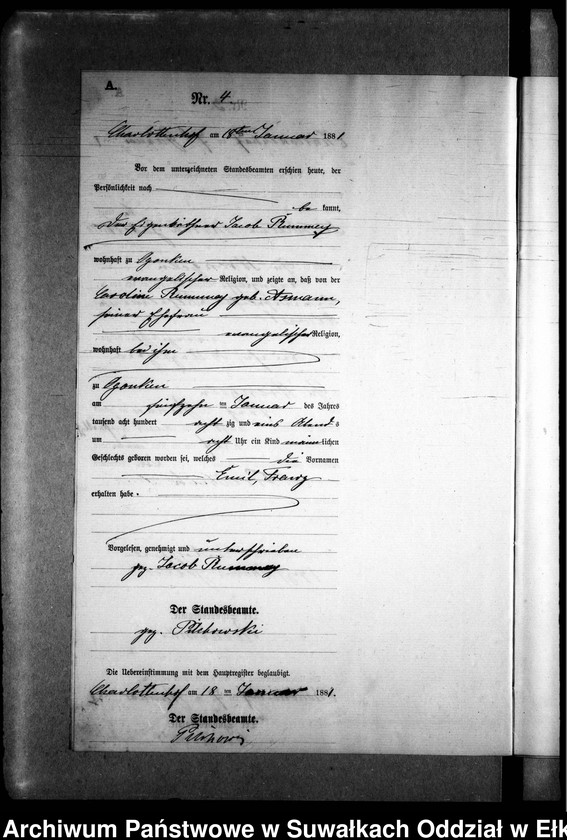 A.
Nr. 4.
Charlottenhof am 18ten Januar 1881
Vor dem unterzeichneten Standesbeamten erschien heute, der
Persönlichkeit nach
be kannt,
der Eigenkäthner Jacob Rummey
wohnhaft zu Czonken
evangelischer Religion, und zeigte an, daß von der
Caroline Rummey geb. Asmann,
seiner Ehefrau
evangelischer Religion,
wohnhaft bei ihm
zu Czonken
am fünfzehn ten Januar des Jahres
tausend acht hundert acht zig und eins Abend s
um acht Uhr ein Kind männ lichen
Geschlechts geboren worden sei, welches die Vornamen
Emil, Franz
erhalten habe.
Vorgelesen, genehmigt und unterschrieben
gez. Jacob Rummey
Der Standesbeamte.
gez.
Die Uebereinstimmung mit dem Hauptregister beglaubigt.
Charlottenhof am 18 ten Januar 1881.
Der Standesbeamte.
Archiwum Państwowe w Suwałkach Oddział w Ełk